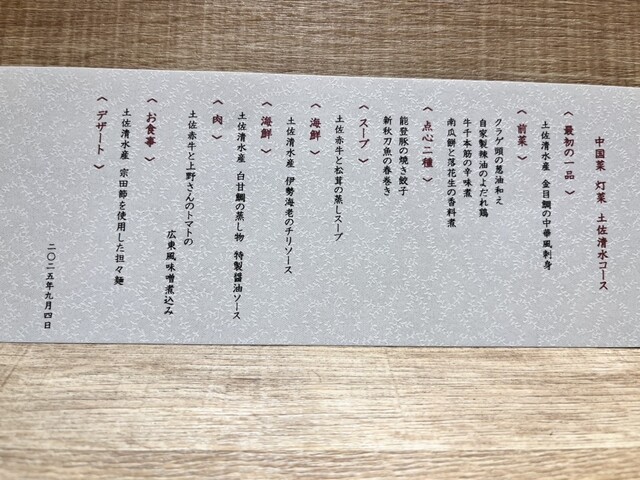 中国菜 灯菜 土佐清水コース
〈 最初の一品 〉
土佐清水産 金目鯛の中華風刺身
〈 前菜 〉
クラゲ頭の葱油和え
自家製辣油のよだれ鶏
牛千本筋の辛味煮
南瓜餅と落花生の香料煮
〈 点心二種 〉
能登豚の焼き餃子
新秋刀魚の春巻き
〈 スープ 〉
土佐赤牛と松茸の蒸しスープ
〈 海鮮 〉
土佐清水産 伊勢海老のチリソース
〈 海鮮 〉
土佐清水産 白甘鯛の蒸し物 特製醤油ソース
〈 肉 〉
土佐赤牛と上野さんのトマトの
広東風味噌煮込み
〈 お食事 〉
土佐清水産 宗田節を使用した担々麺
〈 デザート 〉
二〇二五年九月四日